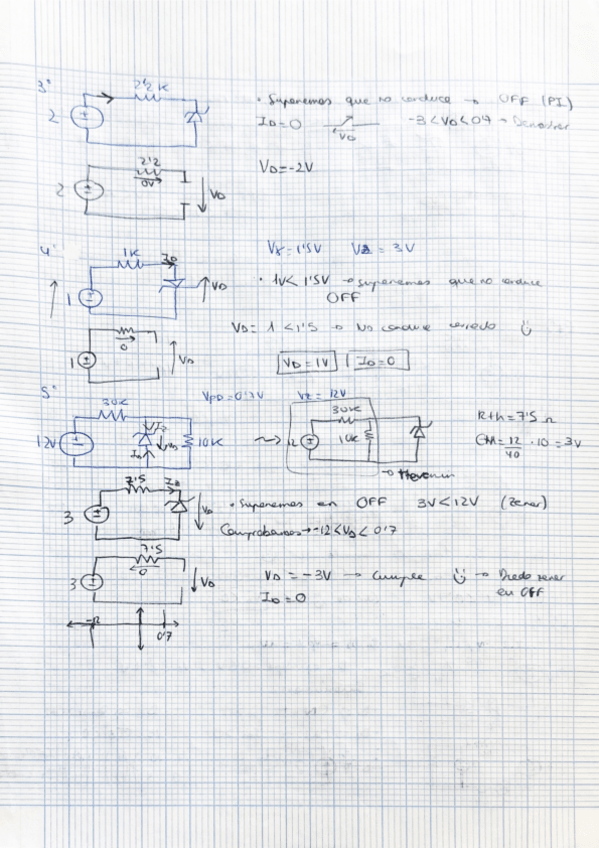 3º
2'2 K
2
• Suponemos que no conduce → OFF (PI)
ID = 0
VD
-3 < VD < 0'7 → Demostrar
2'2
0V
2
VD
VD = -2V
4º
1K
ID
1
VD
Vγ = 1'5V VZ = 3V
• 1V < 1'5V → suponemos que no conduce
OFF
0
1
VD
VD = 1 < 1'5 → No conduce
VD = 1V | ID = 0
5º
VPD = 0'7V VZ = 12V
30K
12V
10K
30K
10K
Rth = 7'5 Ω
12/40 · 10 = 3V
→ Thevenin
7'5
ID
3
VD
• Suponemos en OFF 3V < 12V (zener)
Comprobamos → -12 < VD < 0'7
7'5
0
3
VD
VD = -3V → Cumple → Diodo zener
en OFF
ID = 0
-12
0'7